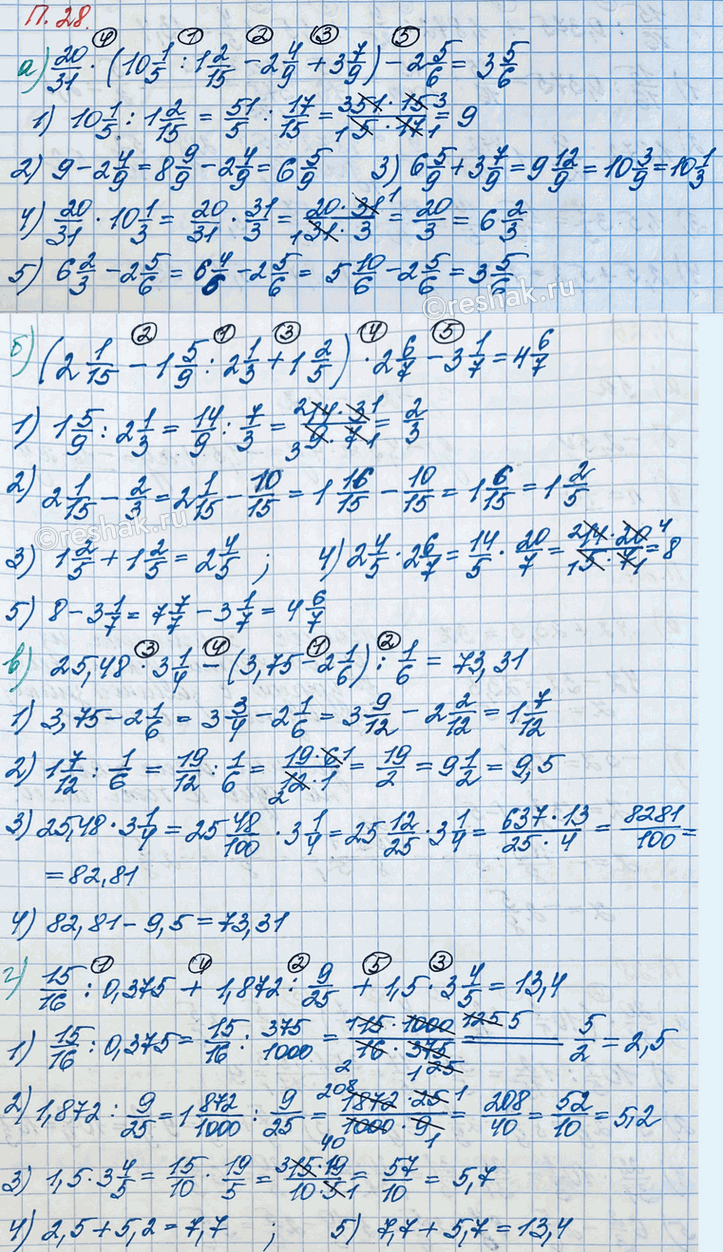 П. 28.
④ ① ② ③ ⑤
а) 20/31 · (10 1/5 : 1 2/15 − 2 4/9 + 3 7/9) − 2 5/6 = 3 5/6
1) 10 1/5 : 1 2/15 = 51/5 : 17/15 = 3 51 · 15 3 / 1 5 · 17 1 = 9
2) 9 − 2 4/9 = 8 9/9 − 2 4/9 = 6 5/9 3) 6 5/9 + 3 7/9 = 9 12/9 = 10 3/9 = 10 1/3
4) 20/31 · 10 1/3 = 20/31 · 31/3 = 20 · 31 1 / 1 31 · 3 = 20/3 = 6 2/3
5) 6 2/3 − 2 5/6 = 6 4/6 − 2 5/6 = 5 10/6 − 2 5/6 = 3 5/6
©reshak.ru
② ① ③ ④ ⑤
б) (2 1/15 − 1 5/9 : 2 1/3 + 1 2/5) · 2 6/7 − 3 1/7 = 4 6/7
1) 1 5/9 : 2 1/3 = 14/9 : 7/3 = 2 14 · 3 1 / 3 9 · 7 1 = 2/3
2) 2 1/15 − 2/3 = 2 1/15 − 10/15 = 1 16/15 − 10/15 = 1 6/15 = 1 2/5
©reshak.ru
3) 1 2/5 + 1 2/5 = 2 4/5 ; 4) 2 4/5 · 2 6/7 = 14/5 · 20/7 = 2 14 · 20 4 / 1 5 · 7 1 = 8
5) 8 − 3 1/7 = 7 7/7 − 3 1/7 = 4 6/7
③ ④ ① ②
в) 25,48 · 3 1/4 − (3,75 − 2 1/6) : 1/6 = 73,31
1) 3,75 − 2 1/6 = 3 3/4 − 2 1/6 = 3 9/12 − 2 2/12 = 1 7/12
2) 1 7/12 : 1/6 = 19/12 : 1/6 = 19 · 6 1 / 2 12 · 1 = 19/2 = 9 1/2 = 9,5
3) 25,48 · 3 1/4 = 25 48/100 · 3 1/4 = 25 12/25 · 3 1/4 = 637 · 13 / 25 · 4 = 8281/100 =
= 82,81
4) 82,81 − 9,5 = 73,31
① ④ ② ⑤ ③
г) 15/16 : 0,375 + 1,872 : 9/25 + 1,5 · 3 4/5 = 13,4
1) 15/16 : 0,375 = 15/16 : 375/1000 = 1 15 · 1000 125 5 / 2 16 · 375 1 25 = 5/2 = 2,5
2) 1,872 : 9/25 = 1 872/1000 : 9/25 = 208 1872 · 25 1 / 40 1000 · 9 1 = 208/40 = 52/10 = 5,2
3) 1,5 · 3 4/5 = 15/10 · 19/5 = 3 15 · 19 / 10 · 5 1 = 57/10 = 5,7
4) 2,5 + 5,2 = 7,7 ; 5) 7,7 + 5,7 = 13,4